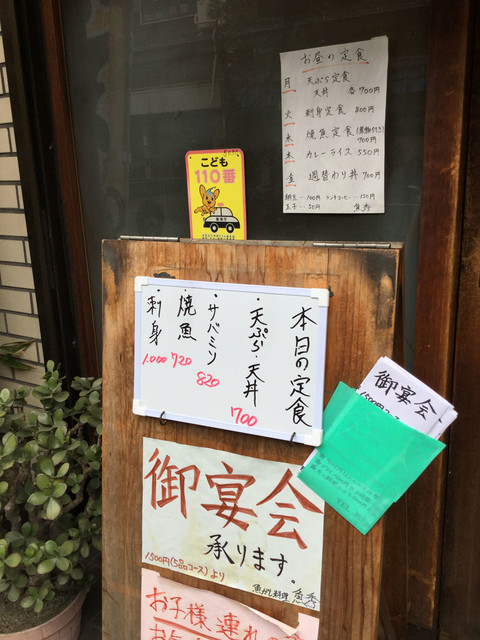 お昼の定食
月 天ぷら定食
天丼 各700円
火 刺身定食 800円
水 焼魚定食(煮物付き)
700円
木 カレーライス 550円
金 週替わり丼 700円
納豆…100円 アイスコーヒー…150円
玉子…50円 魚秀
こども
110番
本日の定食
・天ぷら・天丼 700
・サバミソ 820
・焼魚 720
・刺身 1.000
御宴会
1500円コース
御宴会
承ります。
1500円(5品コース)より
魚がし料理 魚秀
お子様連れの